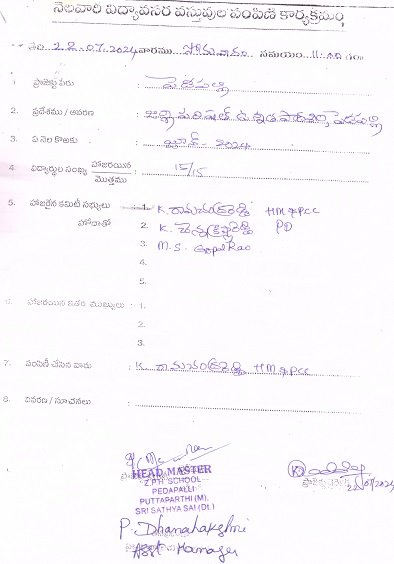 నెలవారీ విద్యావసర వస్తువుల పంపిణి కార్యక్రమం
తేది 22.07.2024 వారము సోమవారం సమయం 11.00
1. ప్రాజెక్టు పేరు : పెదపల్లి
2. ప్రదేశము / ఆవరణ : జిల్లా పరిషత్ ఉన్నత పాఠశాల, పెదపల్లి
3. ఏ నెల కొరకు : జూన్ - 2024
4. విద్యార్థుల సంఖ్య హాజరయిన / మొత్తము : 15/15
5. హాజరైన కమిటీ సభ్యులు : 1. K. రామచంద్రారెడ్డి HM & PCC
హోదాతో 2. K. PD
3. M.S. Gopal Rao
4.
5.
6. హాజరయిన ఇతర ముఖ్యులు : 1.
2.
3.
7. పంపిణీ చేసిన వారు : K రామచంద్రారెడ్డి HM & PCC
8. వివరణ / సూచనలు :
HEAD MASTER
Z.P.H. SCHOOL
PEDAPALLI
PUTTAPARTHI (M),
SRI SATHYA SAI (Dt.)
P. Dhanalakshmi
Asst Manager